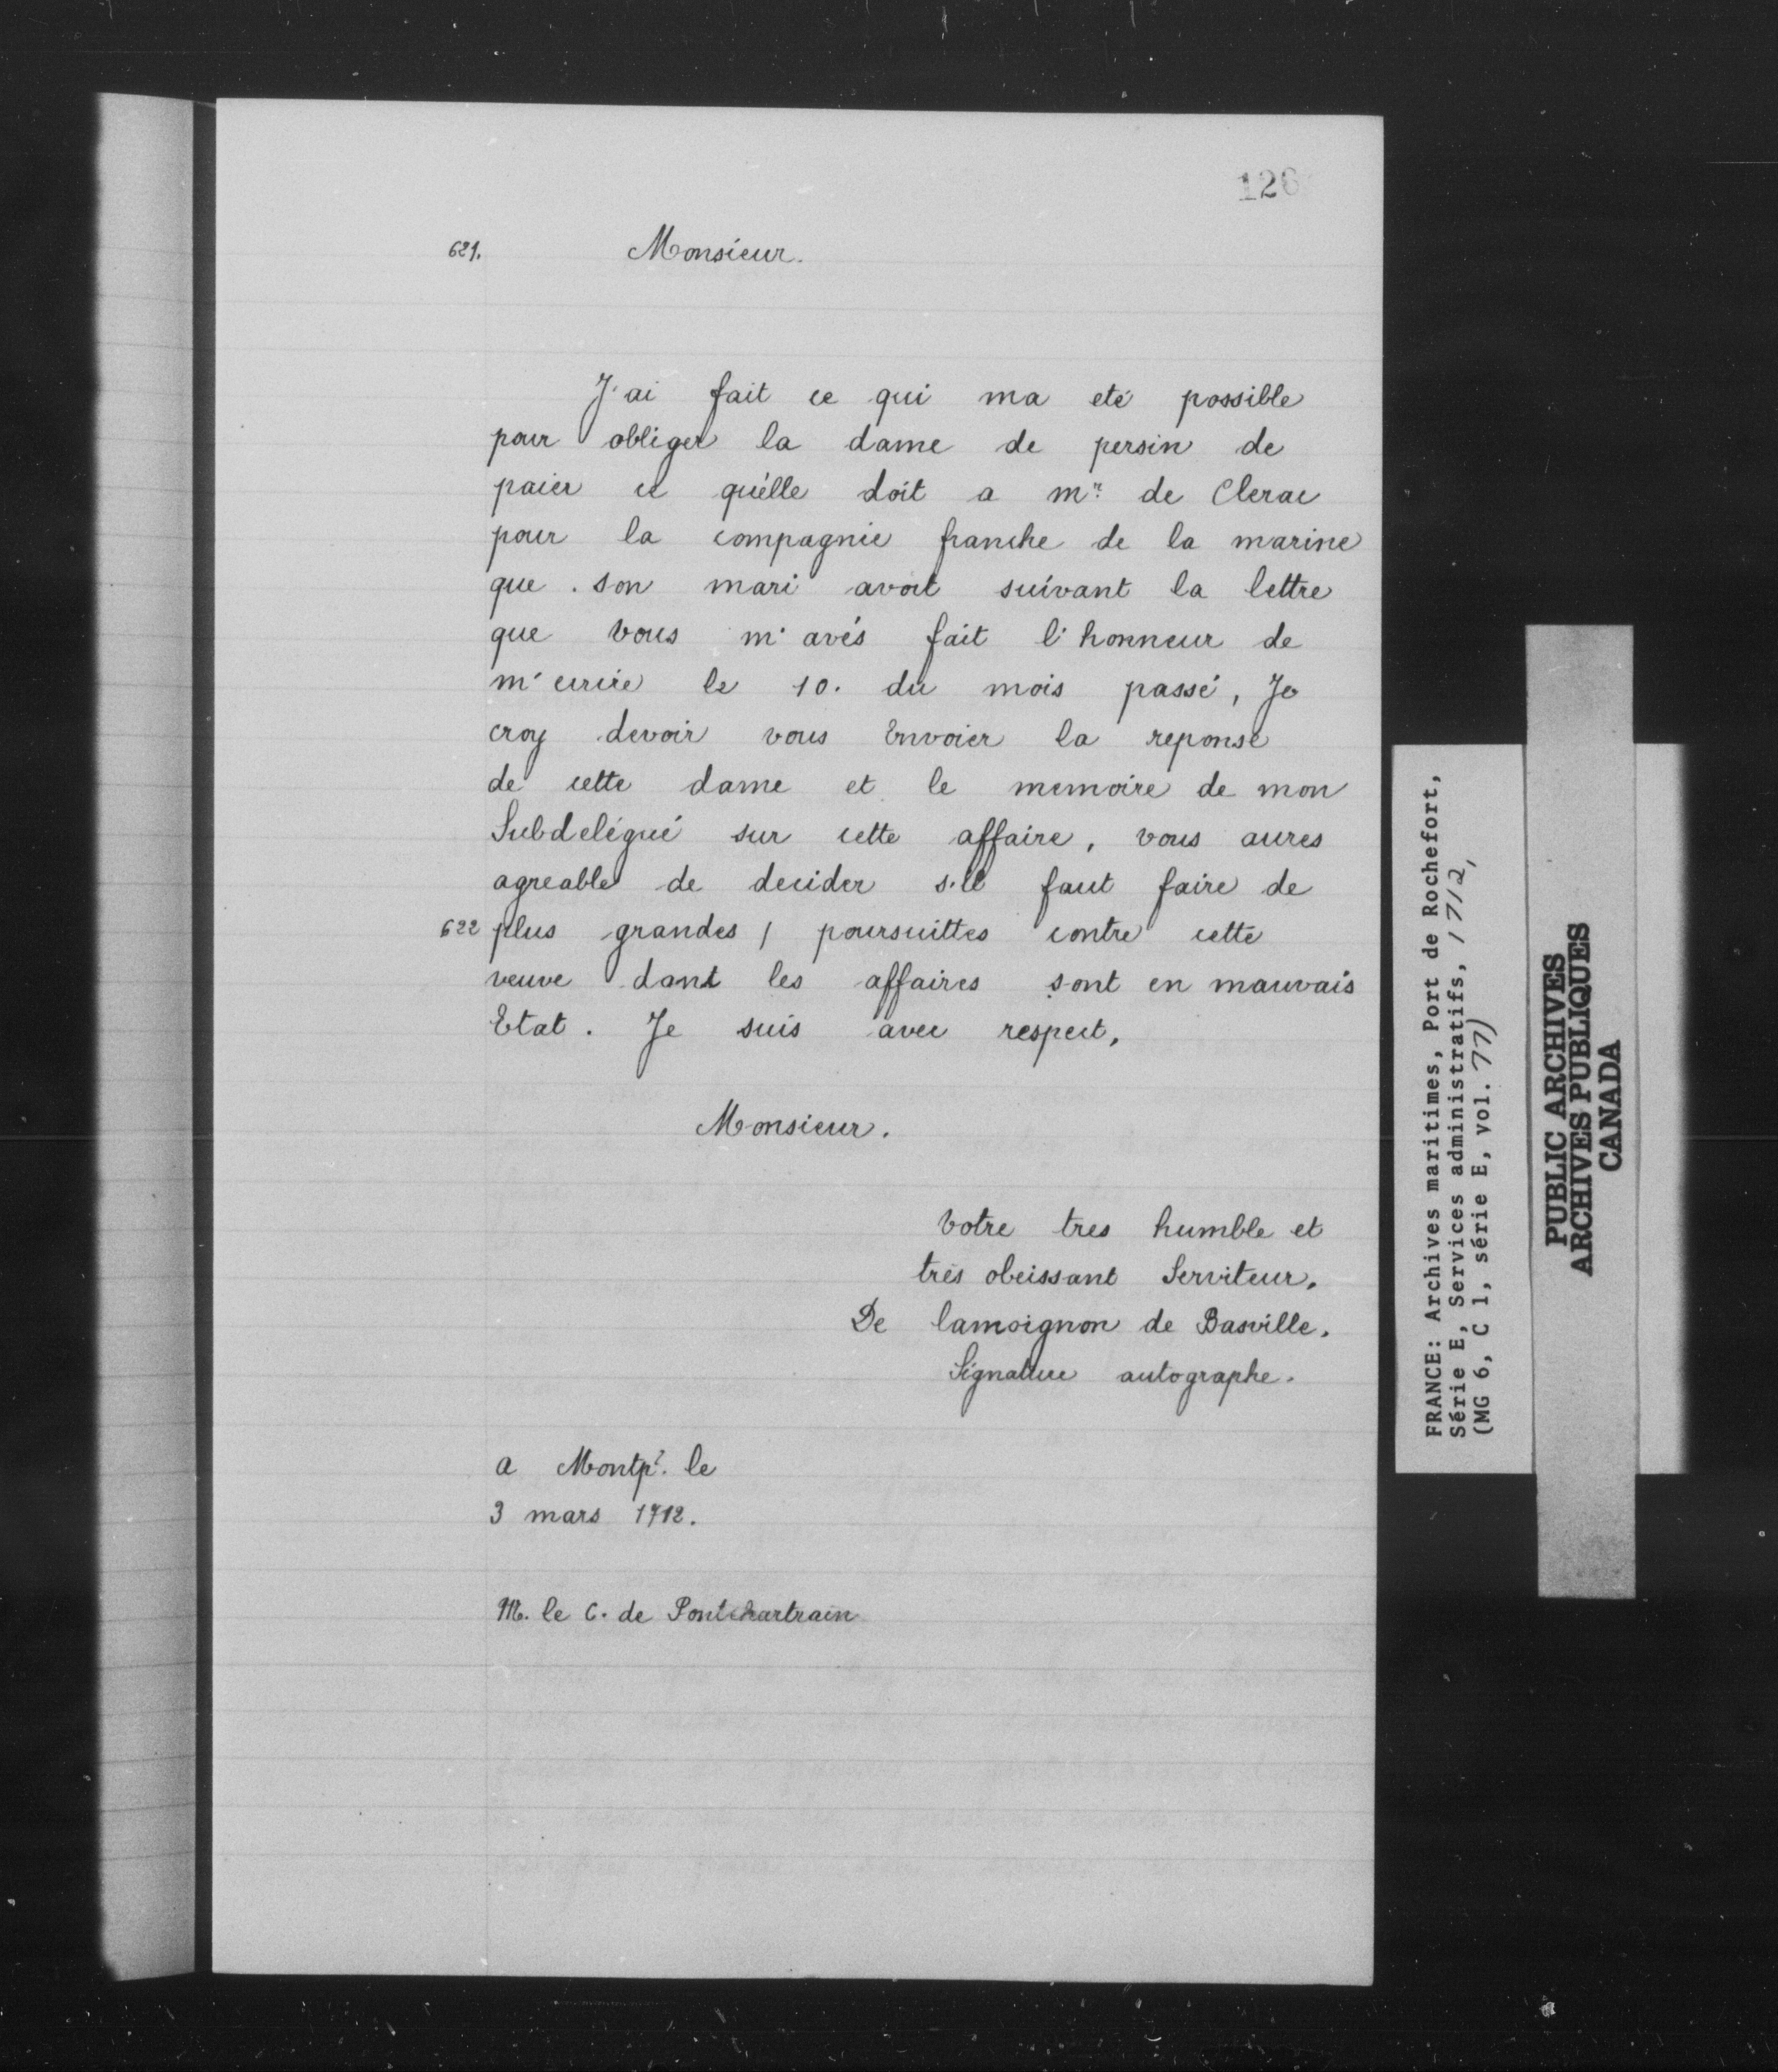 126
621. Monsieur.
J'ai fait ce qui ma eté possible
pour obliger la dame de persin de
paier ce qu'elle doit a mr. de Clerac
pour la compagnie franche de la marine
que son mari avoit suivant la lettre
que vous m'avés fait l'honneur de
m'ecrire le 10. du mois passé, Je
croy devoir vous Envoier la reponse
de cette dame et le memoire de mon
Subdelégué sur cette affaire, vous aures
agreable de decider s'il faut faire de
622 plus grandes / poursuittes contre cette
veuve dont les affaires sont en mauvais
Etat. Je suis avec respect,
Monsieur.
Votre tres humble et
trés obeissant Serviteur.
De lamoignon de Basville.
Signature autographe.
a Montpr. le
3 mars 1712.
M. le C. de Pontchartrain
FRANCE: Archives maritimes, Port de Rochefort,
Série E, Services administratifs, 1712,
(MG 6, C 1, série E, vol. 77)
PUBLIC ARCHIVES
ARCHIVES PUBLIQUES
CANADA